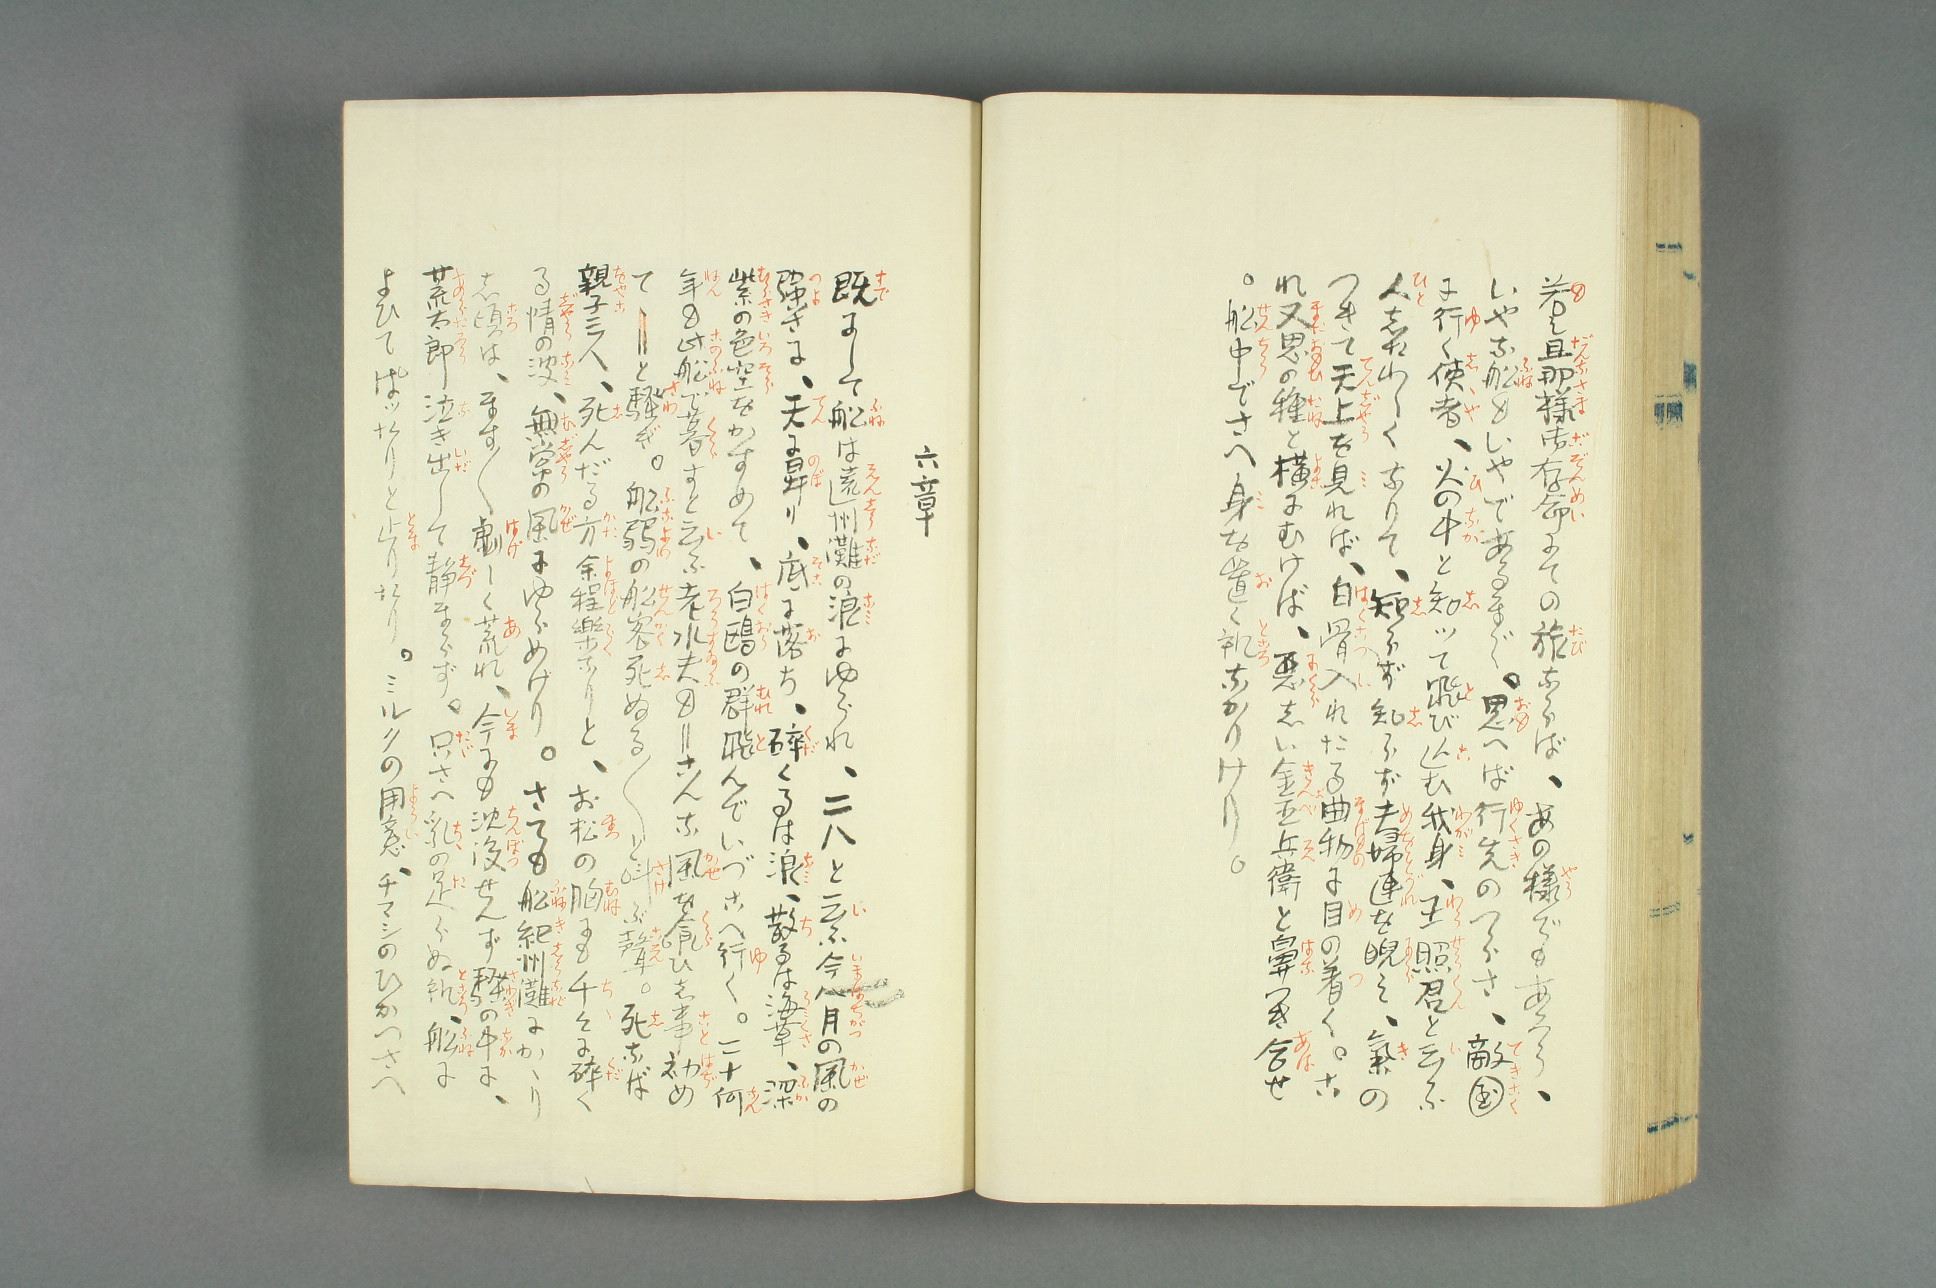 若し旦那様御存命にての旅ならば、あの様でもあらう、
いやな船もいやであるまじく。思へば行先のつらさ、敵国
に行く使者、火の中と知ツて飛び込む我身、王照君と云ふ
人志たわしくなりて、知らず知らず夫婦連を睨み、気の
つきて天上を見れば、白骨入れたる曲物に目の着く。こ
れ又思の種と横にむけば、悪志い金五兵衛と鼻つき合せ
。船中でさへ身を置く処なかりけり。
六章
既にして船は遠州灘の浪にゆられ、二八と云ふ今八月の風の
強さに、天に昇り、底に落ち、砕くるは浪、散るは海草、深
紫の色空をかすめて、白鴎の群飛んでいづこへ行く。二十何
年も此船で暮すと云ふ老水夫も〃こんな風を喰ひし事初め
て〃と騒ぎ。船弱の船客死ぬる〱と叫ぶ声。死なば
親子三人、死んだる方余程楽なりと、お松の胸にも千々に砕く
る情の波、無常の風にゆらめけり。さても船紀州灘にかゝり
志頃は、ます〱劇しく荒れ、今にも沈没せんず騒の中に、
荒太郎泣き出して静まらず。只さへ乳の足らぬ処、船に
よひてぱツたりと止りたり。ミルクの用意、チマシのひかつさへ